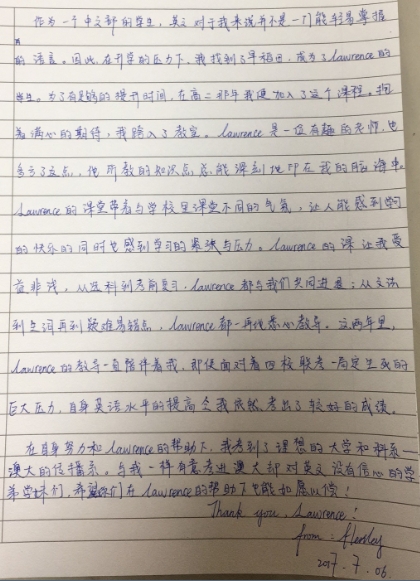 作为一个中文部的学生，英文对于我来说并不是一门能轻易掌握
的语言。因此，在升学的压力下，我找到了早稻田，成为了Lawrence的
学生。为了有足够的提升时间，在高二那年我便加入了这个课程。抱
着满心的期待，我踏入了教室。Lawrence是一位有趣的老师，也
多亏了这点，他所教的知识点总能深刻地印在我的脑海中。
Lawrence的课堂带着与学校里课堂不同的气氛，让人能感到
的快乐的同时也感到学习的紧张与压力。Lawrence的课让我受
益非浅，从选科到考前复习，Lawrence都与我们共同进退；从文法
到生词再到疑难易错点，Lawrence都一再地悉心教导。这两年里，
Lawrence的教导一直陪伴着我，即使面对着四校联考一局定生死的
巨大压力，自身英语水平的提高令我依然考出了较好的成绩。
在自身努力和Lawrence的帮助下，我考到了理想的大学和科系—
澳大的传播系。与我一样有意考进澳大却对英文没有信心的学
弟学妹们，希望你们在Lawrence的帮助下也能如愿以偿！
Thank you, Lawrence!
from:
2017.7.06